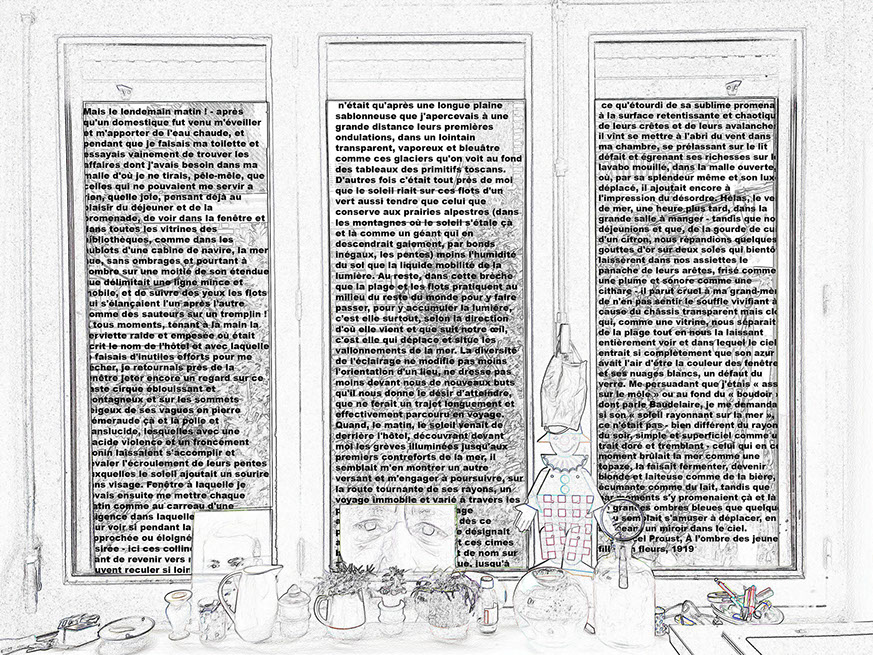 Mais le lendemain matin ! - après
qu'un domestique fut venu m'éveiller
et m'apporter de l'eau chaude, et
pendant que je faisais ma toilette et
essayais vainement de trouver les
affaires dont j'avais besoin dans ma
malle d'où je ne tirais, pêle-mêle, que
celles qui ne pouvaient me servir a
rien, quelle joie, pensant déjà au
plaisir du déjeuner et de la
promenade, de voir dans la fenêtre et
dans toutes les vitrines des
bibliothèques, comme dans les
hublots d'une cabine de navire, la mer
nue, sans ombrages et pourtant à
l'ombre sur une moitié de son étendue
que délimitait une ligne mince et
mobile, et de suivre des yeux les flots
qui s'élançaient l'un après l'autre
comme des sauteurs sur un tremplin !
tous moments, tenant à la main la
serviette raide et empesée où était
écrit le nom de l'hôtel et avec laquelle
je faisais d'inutiles efforts pour me
sécher, je retournais près de la
fenêtre jeter encore un regard sur ce
vaste cirque éblouissant et
montagneux et sur les sommets
neigeux de ses vagues en pierre
émeraude çà et là polie et
translucide, lesquelles avec une
placide violence et un froncement
léonin laissaient s'accomplir et
dévaler l'écroulement de leurs pentes
auxquelles le soleil ajoutait un sourire
sans visage. Fenêtre à laquelle je
devais ensuite me mettre chaque
matin comme au carreau d'une
diligence dans laquelle
pour voir si pendant la
rapprochée ou éloigné
désirée - ici ces colline
avant de revenir vers
peuvent reculer si loin
n'était qu'après une longue plaine
sablonneuse que j'apercevais à une
grande distance leurs premières
ondulations, dans un lointain
transparent, vaporeux et bleuâtre
comme ces glaciers qu'on voit au fond
des tableaux des primitifs toscans.
D'autres fois c'était tout près de moi
que le soleil riait sur ces flots d'un
vert aussi tendre que celui que
conserve aux prairies alpestres (dans
les montagnes où le soleil s'étale çà
et là comme un géant qui en
descendrait gaiement, par bonds
inégaux, les pentes) moins l'humidité
du sol que la liquide mobilité de la
lumière. Au reste, dans cette brèche
que la plage et les flots pratiquent au
milieu du reste du monde pour y faire
passer, pour y accumuler la lumière,
c'est elle surtout, selon la direction
d'où elle vient et que suit notre œil,
c'est elle qui déplace et situe les
vallonnements de la mer. La diversité
de l'éclairage ne modifie pas moins
l'orientation d'un lieu, ne dresse pas
moins devant nous de nouveaux buts
qu'il nous donne le désir d'atteindre,
que ne ferait un trajet longuement et
effectivement parcouru en voyage.
Quand, le matin, le soleil venait de
derrière l'hôtel, découvrant devant
moi les grèves illuminées jusqu'aux
premiers contreforts de la mer, il
semblait m'en montrer un autre
versant et m'engager à poursuivre, sur
la route tournante de ses rayons, un
voyage immobile et varié à travers les
dès ce
désignait
et ces cimes
t de nom sur
ue, jusqu'à
ce qu'étourdi de sa sublime promena
à la surface retentissante et chaotiqu
de leurs crêtes et de leurs avalanche
il vînt se mettre à l'abri du vent dans
ma chambre, se prélassant sur le lit
défait et égrenant ses richesses sur le
lavabo mouillé, dans la malle ouverte,
où, par sa splendeur même et son lux
déplacé, il ajoutait encore à
l'impression du désordre. Hélas, le ve
de mer, une heure plus tard, dans la
grande salle à manger - tandis que no
déjeunions et que, de la gourde de cu
d'un citron, nous répandions quelques
gouttes d'or sur deux soles qui bientô
laissèrent dans nos assiettes le
panache de leurs arêtes, frisé comme
une plume et sonore comme une
cithare - il parut cruel à ma grand-mèr
de n'en pas sentir le souffle vivifiant à
cause du châssis transparent mais clo
qui, comme une vitrine, nous séparait
de la plage tout en nous la laissant
entièrement voir et dans lequel le ciel
entrait si complètement que son azur
avait l'air d'être la couleur des fenêtre
et ses nuages blancs, un défaut du
verre. Me persuadant que j'étais « ass
sur le môle » ou au fond du « boudoir
dont parle Baudelaire, je me demanda
si son « soleil rayonnant sur la mer »,
ce n'était pas - bien différent du rayon
du soir, simple et superficiel comme u
trait doré et tremblant - celui qui en ce
moment brûlait la mer comme une
topaze, la faisait fermenter, devenir
blonde et laiteuse comme de la bière,
écumante comme du lait, tandis que
s'y promenaient çà et là
grandes ombres bleues que quelqu
semblait s'amuser à déplacer, en
un miroir dans le ciel.
el Proust, À l'ombre des jeune
fill n fleurs, 1919